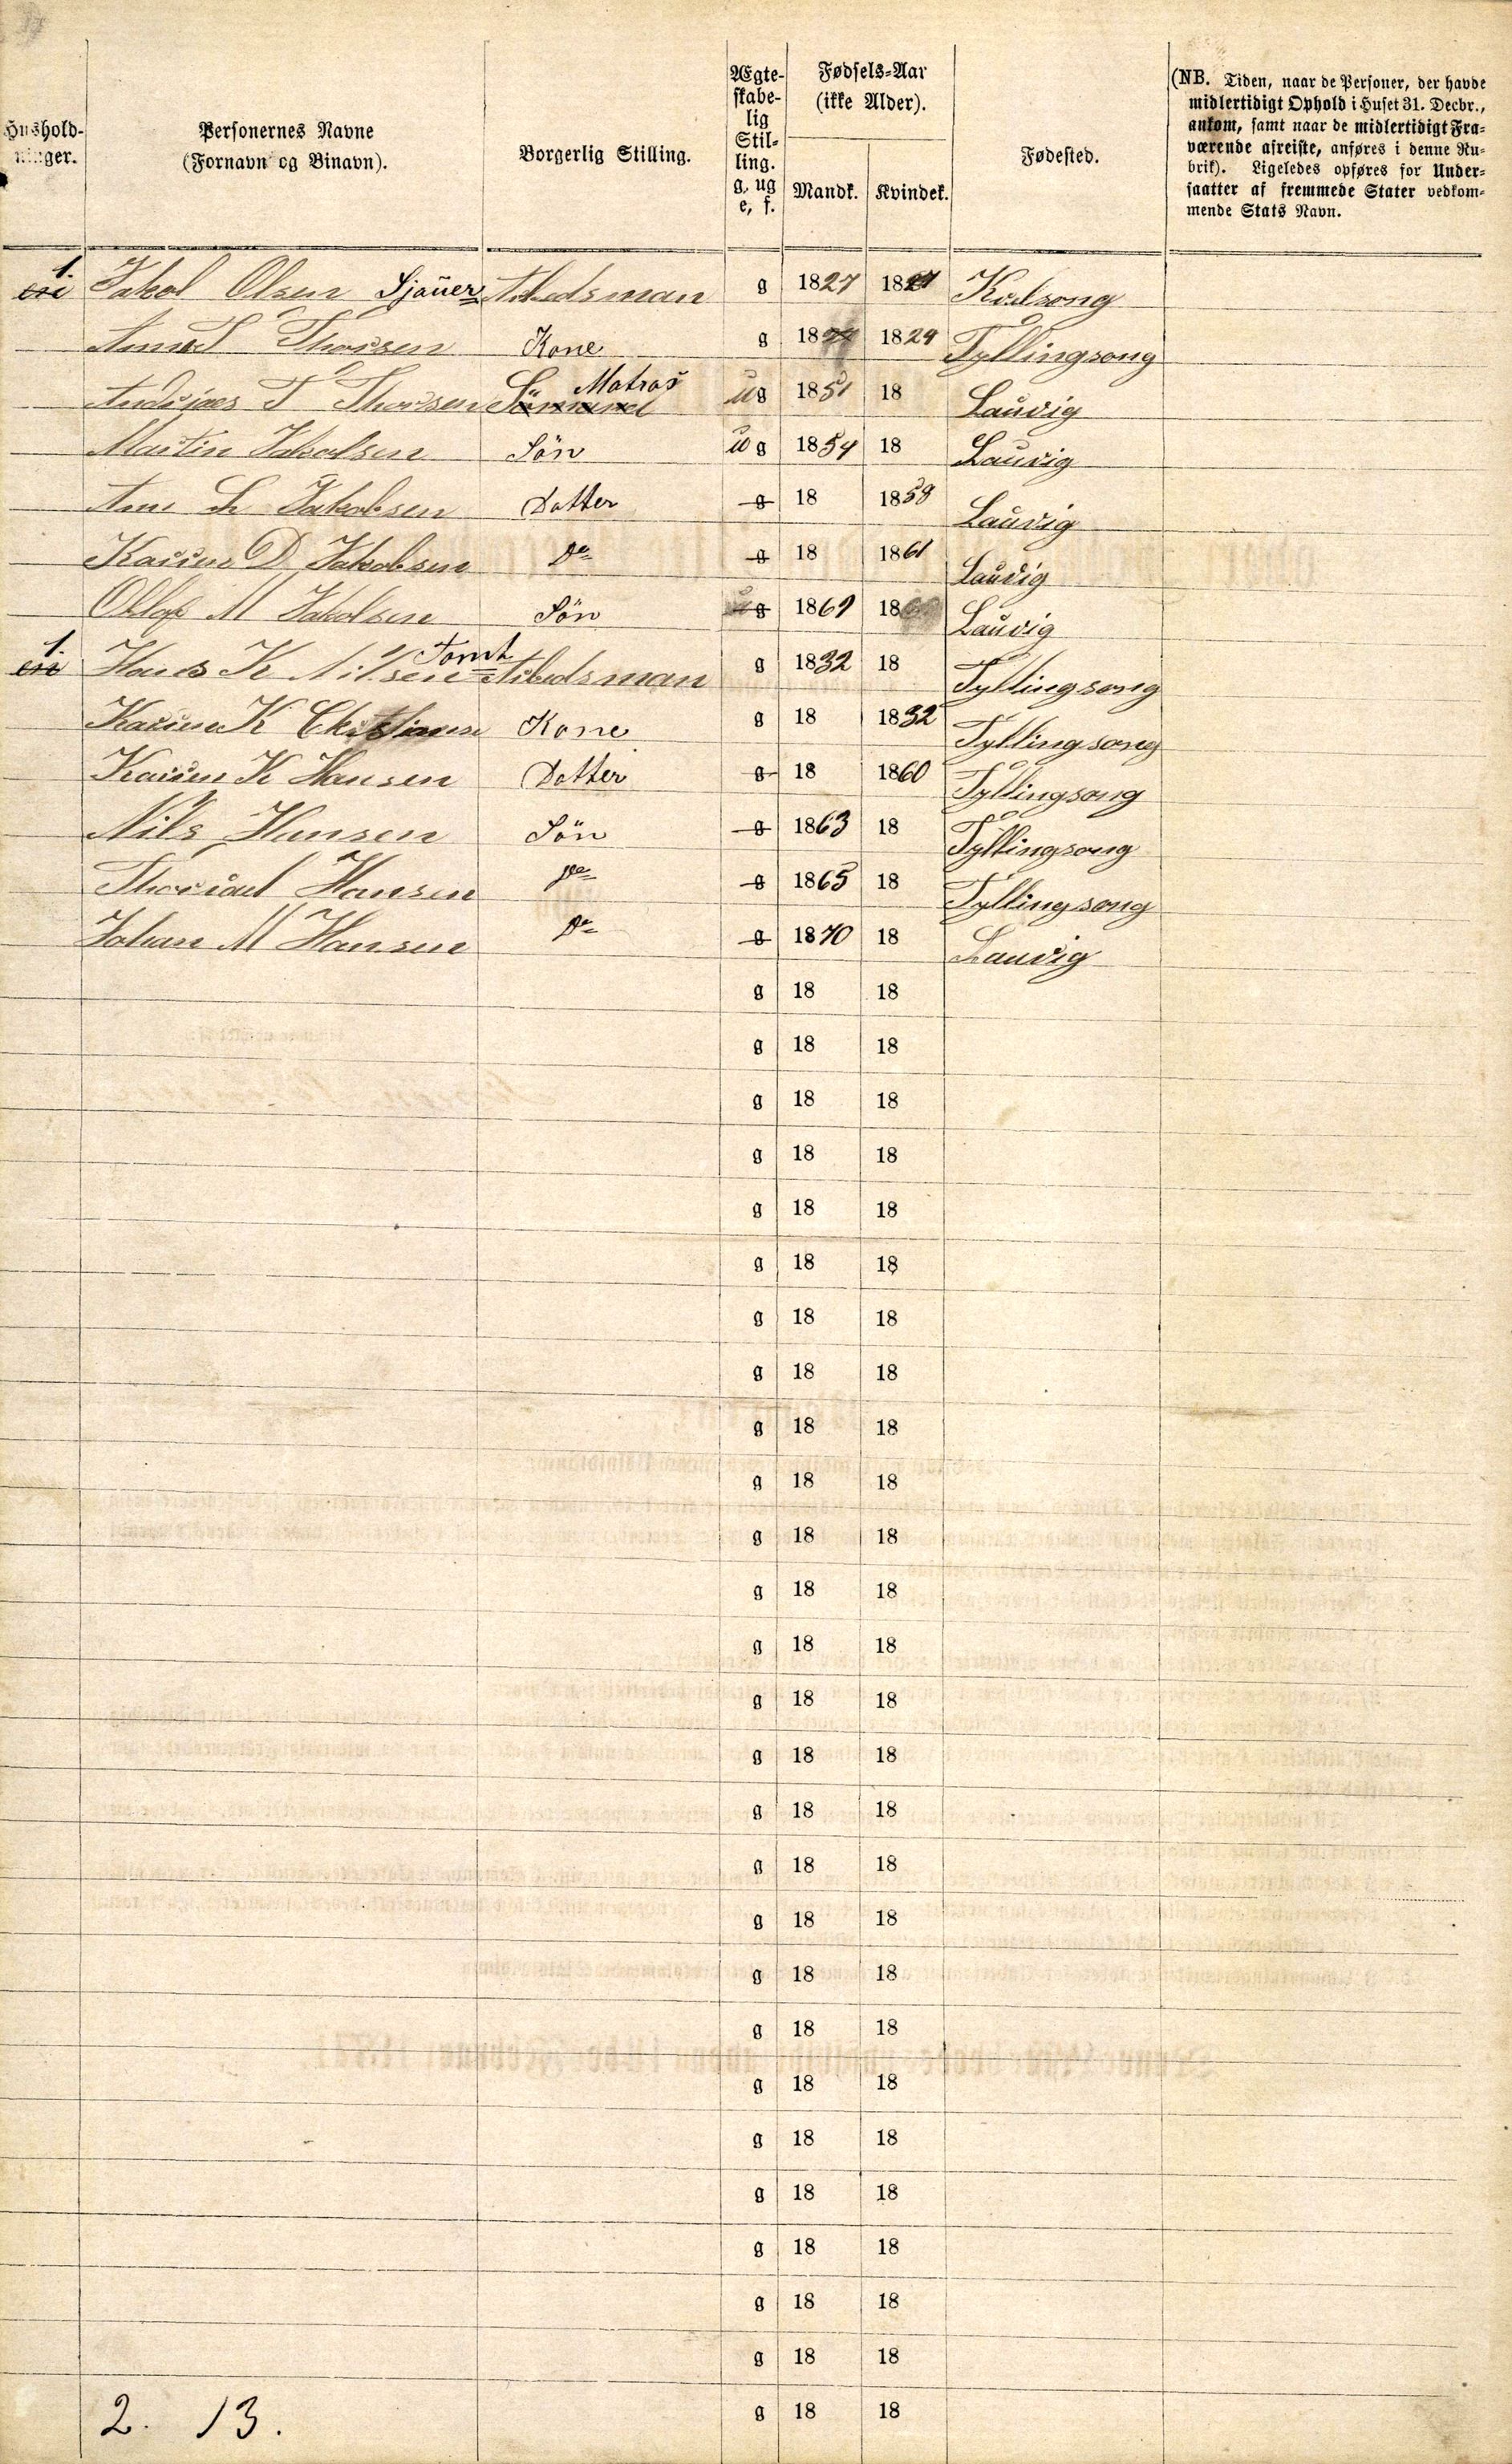 Hushold-
ninger.
Personernes Navne
(Fornavn og Binavn).
Borgerlig Stilling.
Ægte-
skabe-
lig
Stil-
ling.
g, ug
e, f.
Fødsels-Aar
(ikke Alder).
Mandk. Kvindek.
Fødested.
(NB. Tiden, naar de Personer, der havde
midlertidigt Ophold i Huset 31. Decbr.,
ankom, samt naar de midlertidigt Fra-
værende afreiste, anføres i denne Ru-
brik). Ligeledes opføres for Under-
saatter af fremmede Stater vedkom-
mende Stats Navn.
1. Jakob Olsen Sjauer Arbedsman g 1827 18 Kodsong
Anne T Thorsen Kone g 18 1829 Tyllingsong
Andreas T Thorsen Matros ug 1851 18 Laurvig
Martin Jakobsen Sön ug 1854 18 Laurvig
Ane L Jakobsen Datter g 18 1858 Laurvig
Karine D Jakobsen Do g 18 1861 Laurvig
Ollaf M Jakobsen Sön g 1869 18 Laurvig
1. Hans K Nilsen Tomt Arbedsman g 1832 18 Tyllingsong
Karine K Christiansen Kone g 18 1832 Tyllingsong
Karine K Hansen Datter g 18 1860 Tyllingsong
Nils Hansen Sön g 1863 18 Tyllingsong
Thorvald Hansen Do g 1865 18 Tyllingsong
Johan M Hansen Do g 1870 18 Laurvig
g 18 18
g 18 18
g 18 18
g 18 18
g 18 18
g 18 18
g 18 18
g 18 18
g 18 18
g 18 18
g 18 18
g 18 18
g 18 18
g 18 18
g 18 18
g 18 18
g 18 18
g 18 18
g 18 18
g 18 18
g 18 18
g 18 18
g 18 18
g 18 18
g 18 18
g 18 18
g 18 18
2. 13.